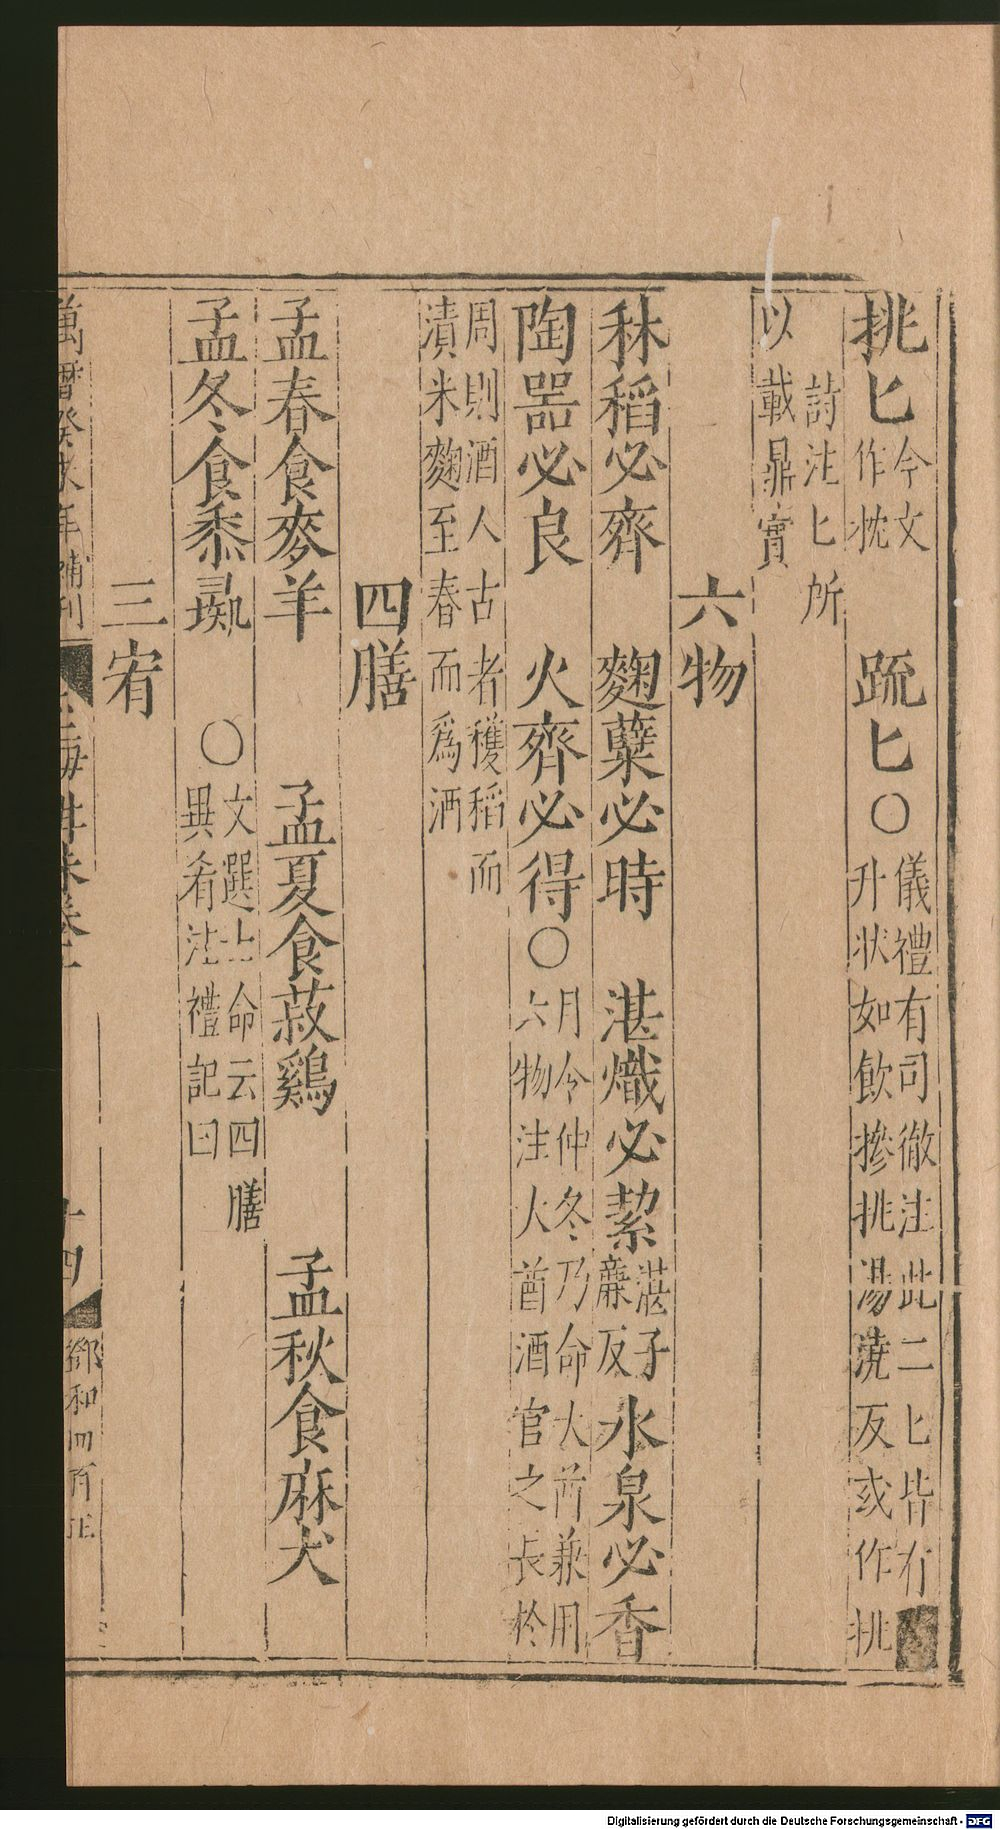 挑匕今文作抌 疏匕〇儀禮有司徹注此二匕皆有升狀如飲摻挑湯澆反或作挑
詩注匕所以載鼎實
六物
秫稻必齊 麴蘖必時 湛熾必絜湛子廉反水泉必香
陶器必良 火齊必得〇月令仲冬乃命大酋兼用六物注大酋酒官之長於
周則酒人古者穫稻而漬米麴至春而爲酒
四膳
孟春食麥羊 孟夏食菽鷄 孟秋食麻犬
孟冬食黍彘 〇文選七命云四膳異肴注禮記曰
三宥
萬曆癸未年補刊 玉海 卷 十四
Digitalisierung gefördert durch die Deutsche Forschungsgemeinschaft - DFG